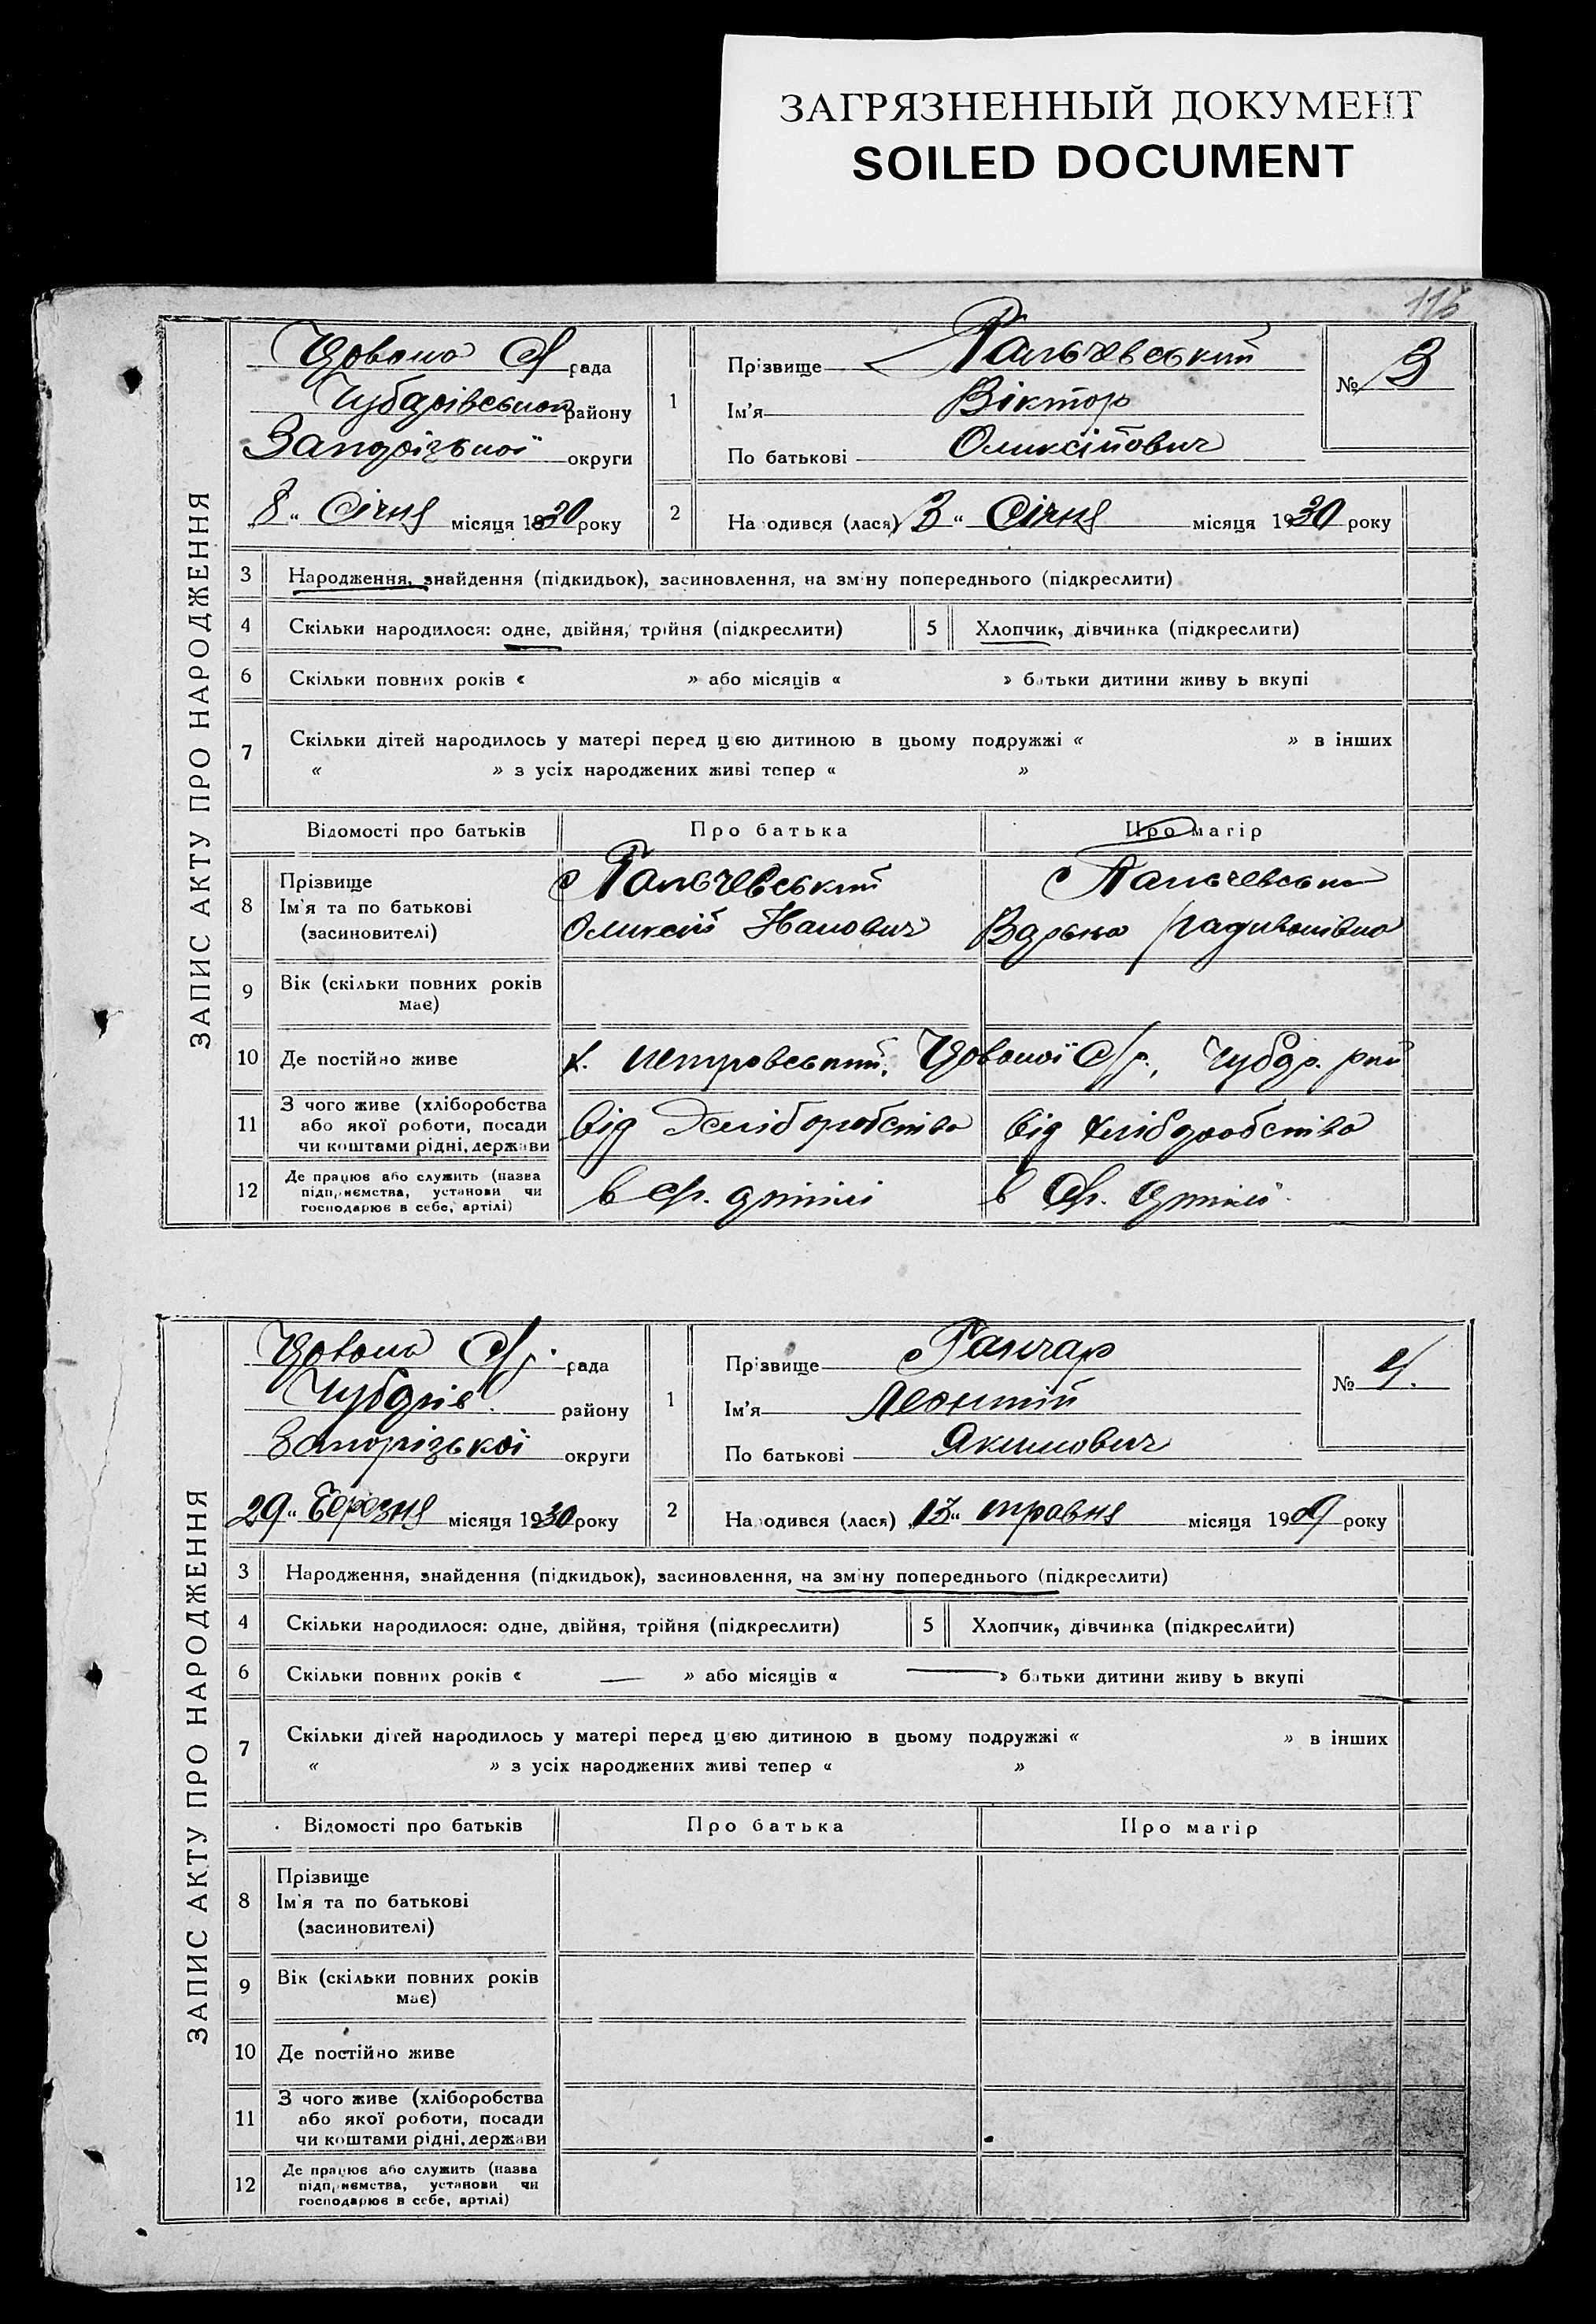 ЗАГРЯЗНЕННЫЙ ДОКУМЕНТ
SOILED DOCUMENT
116
ЗАПИС АКТУ ПРО НАРОДЖЕННЯ
рада
району
Запорізької округи
8 " Січня місяця 1930 року
1
Прізвище Пальчевський
Ім'я Віктор
По батькові Олексійович
№ 3
2 Народився (лася) 3 " Січня місяця 1930 року
3 Народження, знайдення (підкидьок), засиновлення, на зміну попереднього (підкреслити)
4 Скільки народилося: одне, двійня, трійня (підкреслити) 5 Хлопчик, дівчинка (підкреслити)
6 Скільки повних років « » або місяців « » батьки дитини живуть вкупі
7 Скільки дітей народилось у матері перед цією дитиною в цьому подружжі « » в інших
« » з усіх народжених живі тепер « »
Відомості про батьків Про батька Про матір
8 Прізвище
Ім'я та по батькові
(засиновителі)
Пальчевський
Олексій
Пальчевська
9 Вік (скільки повних років
має)
10 Де постійно живе х. Петровський, С/р.,
11 З чого живе (хліборобства
або якої роботи, посади
чи коштами рідні, держави
від хліборобства від хліборобства
12 Де працює або служить (назва
підприємства, установи чи
господарює в себе, артілі)
в с/г. артілі в с/г. артілі
ЗАПИС АКТУ ПРО НАРОДЖЕННЯ
рада
району
Запорізької округи
29 " Березня місяця 1930 року
1
Прізвище Ганчар
Ім'я Леонтій
По батькові Якимович
№ 4.
2 Народився (лася) „13 " травня місяця 1909 року
3 Народження, знайдення (підкидьок), засиновлення, на зміну попереднього (підкреслити)
4 Скільки народилося: одне, двійня, трійня (підкреслити) 5 Хлопчик, дівчинка (підкреслити)
6 Скільки повних років « — » або місяців « — » батьки дитини живуть вкупі
7 Скільки дітей народилось у матері перед цією дитиною в цьому подружжі « » в інших
« » з усіх народжених живі тепер « »
Відомості про батьків Про батька Про матір
8 Прізвище
Ім'я та по батькові
(засиновителі)
9 Вік (скільки повних років
має)
10 Де постійно живе
11 З чого живе (хліборобства
або якої роботи, посади
чи коштами рідні, держави
12 Де працює або служить (назва
підприємства, установи чи
господарює в себе, артілі)